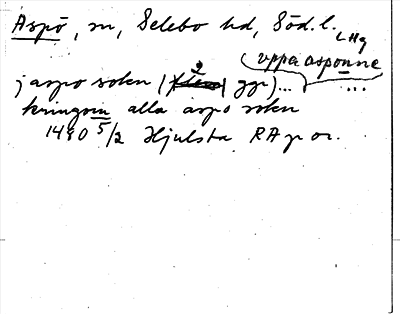 Aspö, sn, Selebo hd, Söd. l.
LHg
uppa asponne
j aspo sokn (2 ggr)... ...
kringom alla aspo sokn
1480 5/2 Hjulsta RAp or.